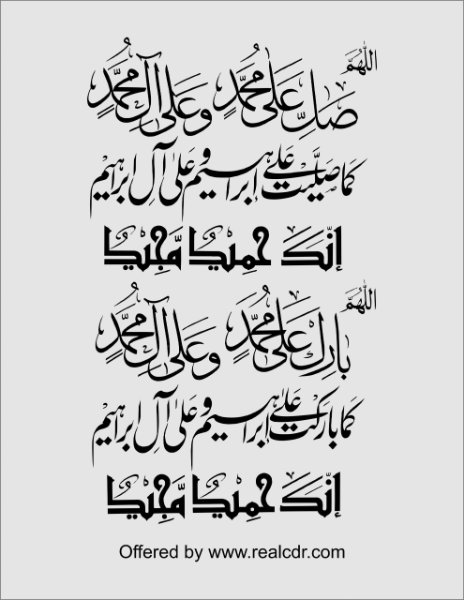 اللهُمَّ صَلِّ عَلٰى مُحَمَّدٍ وَعَلٰى اٰلِ مُحَمَّدٍ
كما صليت على ابراهيم وعلى آل ابراهيم
إنك حميد مجيد
اللهُمَّ بَارِكْ عَلٰى مُحَمَّدٍ وَعَلٰى اٰلِ مُحَمَّدٍ
كما باركت على ابراهيم وعلى آل ابراهيم
إنك حميد مجيد
Offered by www.realcdr.com